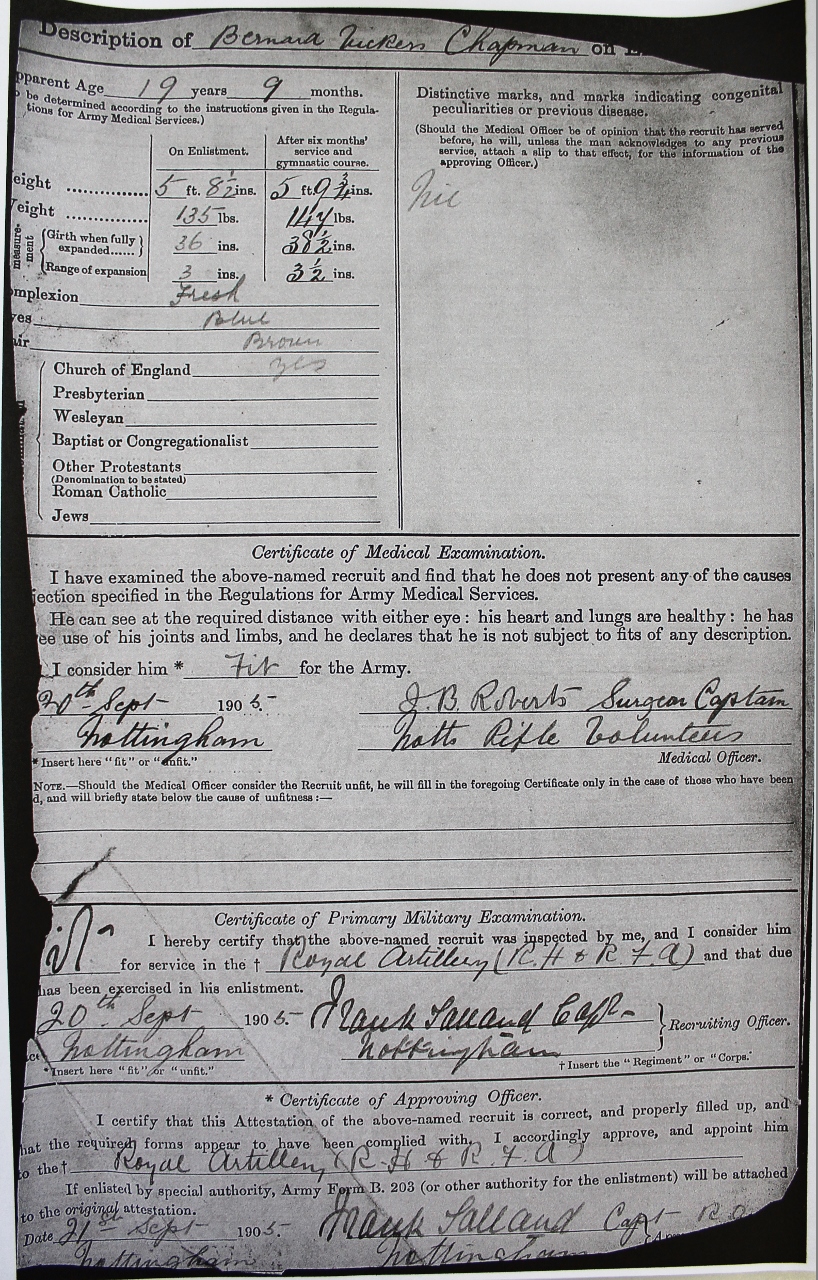 Description of Bernard Vickers Chapman on
pparent Age 19 years 9 months.
be determined according to the instructions given in the Regula-
tions for Army Medical Services.)
On Enlistment.
After six months'
service and
gymnastic course.
eight .............. 5 ft. 8½ ins. 5 ft. 9¾ ins.
eight .............. 135 lbs. 147 lbs.
measure-
ment
Girth when fully
expanded...... 36 ins. 38½ ins.
Range of expansion 3 ins. 3½ ins.
mplexion Fresh
yes Blue
air Brown
Church of England yes
Presbyterian
Wesleyan
Baptist or Congregationalist
Other Protestants
(Denomination to be stated)
Roman Catholic
Jews
Distinctive marks, and marks indicating congenital
peculiarities or previous disease.
(Should the Medical Officer be of opinion that the recruit has served
before, he will, unless the man acknowledges to any previous
service, attach a slip to that effect, for the information of the
approving Officer.)
Nil
Certificate of Medical Examination.
I have examined the above-named recruit and find that he does not present any of the causes
jection specified in the Regulations for Army Medical Services.
He can see at the required distance with either eye: his heart and lungs are healthy: he has
ee use of his joints and limbs, and he declares that he is not subject to fits of any description.
I consider him * Fit for the Army.
20th Sept 1905. J. B. Roberts Surgeon Captain
Nottingham Notts Rifle Volunteers
* Insert here "fit" or "unfit." Medical Officer.
NOTE.—Should the Medical Officer consider the Recruit unfit, he will fill in the foregoing Certificate only in the case of those who have been
d, and will briefly state below the cause of unfitness:—
Certificate of Primary Military Examination.
I hereby certify that the above-named recruit was inspected by me, and I consider him
for service in the † Royal Artillery (R. H & R. F. A) and that due
has been exercised in his enlistment.
20th Sept 1905. Frank Salland Capt Recruiting Officer.
Nottingham Nottingham
* Insert here "fit" or "unfit." † Insert the "Regiment" or "Corps."
* Certificate of Approving Officer.
I certify that this Attestation of the above-named recruit is correct, and properly filled up, and
hat the required forms appear to have been complied with. I accordingly approve, and appoint him
to the † Royal Artillery (R. H & R. F. A)
If enlisted by special authority, Army Form B. 203 (or other authority for the enlistment) will be attached
to the original attestation.
Date 21st Sept 1905. Frank Salland Capt R.A.
Nottingham Nottingham